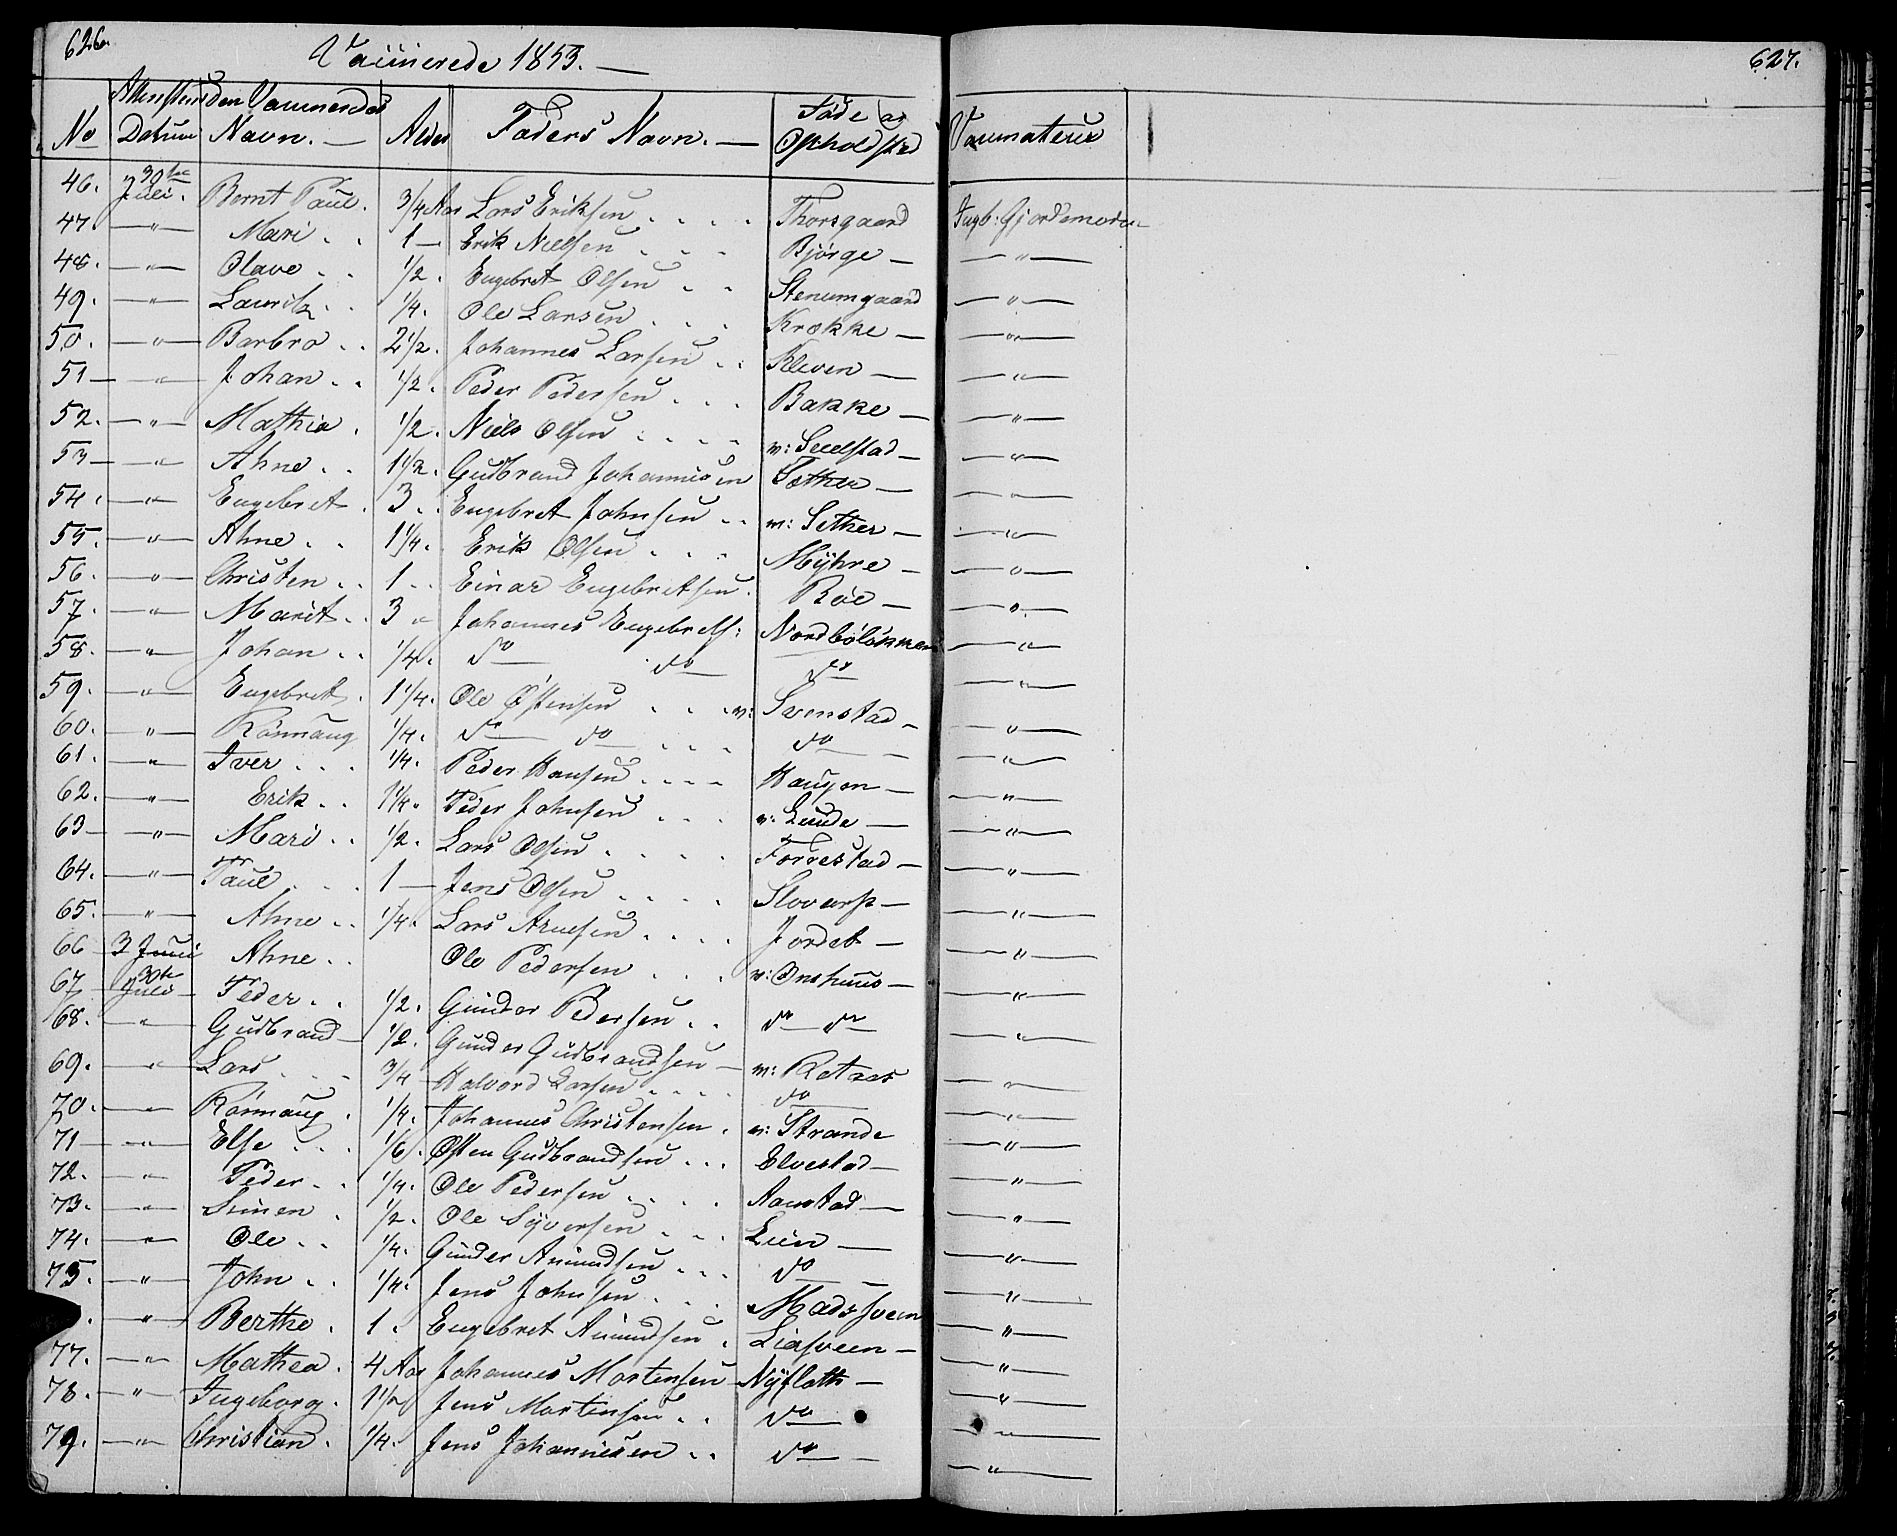 626. 627.
Vaccinerede 1853. —
No Attestens Datum den Vaccineredes Navn. — Alder Faders Navn. — Føde og Opholdsted Vaccinateur
46. 30te Juli. Bernt Paul. 3/4 Aar Lars Eriksen Thorsgaard Ingb: Gjordemoder
47 — " — Mari 1 — Erik Nielsen Bjørge — — " —
48. — " — Olave 1/2. Engebret Olsen Stenumgaard — " —
49. — " — Lauritz 1/4. Ole Larsen Krække — — " —
50. — " — Barbro 2 1/2. Johannes Larsen Kleven — — " —
51 — " — Johan 1/2. Peder Pedersen Bakke — — " —
52. — " — Mathia 1/2. Niels Olsen v: — " —
53 — " — Ahne 1 1/2. Gudbrand Johannesen Sæther — — " —
54. — " — Engebret 3 Engebret Johnsen v: Sether — — " —
55. — " — Ahne 1 1/4. Erik Olsen Myhre — — " —
56. — " — Christen 1 Einar Engebretsen. Röe — — " —
57. — " — Marit 3 " Johannes Engebrets: — " —
58. — " — Johan 1/4. do — do — do — " —
59. — " — Engebret 1 1/4. Ole Östensen v: Svenstad — — " —
60. — " — Rönnaug 1/4. do — do do — — " —
61. — " — Iver 1/4. Peder Hansen Haugen — — " —
62. — " — Erik 1 1/4. Peder Johnsen v: Lunde — — " —
63 — " — Mari 1/2. Lars Olsen Forrestad — — " —
64. — " — Paul 1 — Jens Olsen — " —
65. — " — Ahne 1/4. Lars Arnesen Jordet — — " —
66 3 Juni Ahne Ole Pedersen v: Onshuus — — " —
67 30te Juli Peder 1/2. Gunder Pedersen do — do — — " —
68. — " — Gudbrand — 1/2. Gunder Gudbrandsen — v: — " —
69. — " — Lars 3/4 Halvord Larsen do — " —
70. — " — Rönnaug. 1/4. Johannes Christensen. v: Strande — " —
71 — " — Else 1/6. Östen Gudbrandsen Elvestad — — " —
72. — " — Peder 1/4. Ole Pedersen Aamstad — — " —
73. — " — Simen 1/2. Ole Syversen Lien — — " —
74. — " — Ole 1/4. Gunder Amundsen do — — " —
75. — " — John 1/4. Jens Johnsen Madssveen — " —
. — " — Berthe. 1. Engebret Amundsen. Liesveen — — " —
77. — " — Mathea. 4 Aar Johannes Mortensen Nyfloth — — " —
78. — " — Ingeborg. 1 1/2 Jens Mortensen do — — " —
79. — " — Christian. 1/4. Jens Johannesen do — — " —